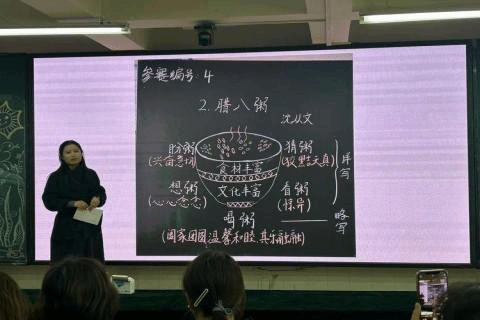 参赛编号: 4
2. 腊八粥
沈从文
盼粥
(兴奋急切)
猜粥
(狡黠天真)
食材丰富
详写
想粥
(心心念念)
文化丰富
看粥
(惊异)
喝粥
略写
(阖家团圆温馨和睦,其乐融融)